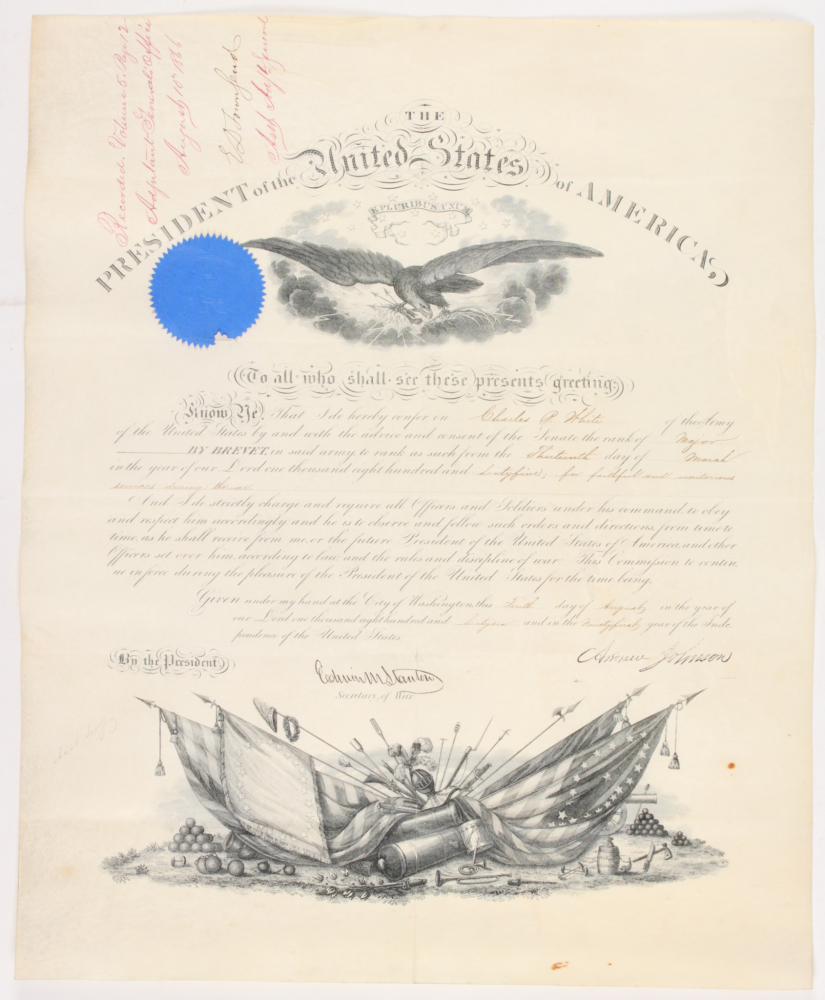 Recorded. Volume 5. Page 12
Adjutant General's Office
August 10th 1866
E D Townsend
Asst Adjt General
THE
PRESIDENT of the United States of AMERICA,
E PLURIBUS UNUM
To all who shall see these presents greeting:
Know Ye, That I do hereby confer on Charles A. White of the Army
of the United States by and with the advice and consent of the Senate the rank of Major
BY BREVET, in said army to rank as such from the Thirteenth day of March
in the year of our Lord one thousand eight hundred and Sixtyfive, for faithful and meritorious
services during the war
And I do strictly charge and require all Officers and Soldiers under his command to obey
and respect him accordingly and he is to observe and follow such orders and directions, from time to
time, as he shall receive from me, or the future President of the United States of America, and other
Officers set over him, according to law, and the rules and discipline of war. This Commission to contin-
ue in force during the pleasure of the President of the United States for the time being.
Given under my hand at the City of Washington, this Tenth day of August, in the year of
our Lord one thousand eight hundred and Sixtysix and in the Ninetyfirst, year of the Inde-
pendence of the United States
By the President
Andrew Johnson
Edwin M Stanton
Secretary of War